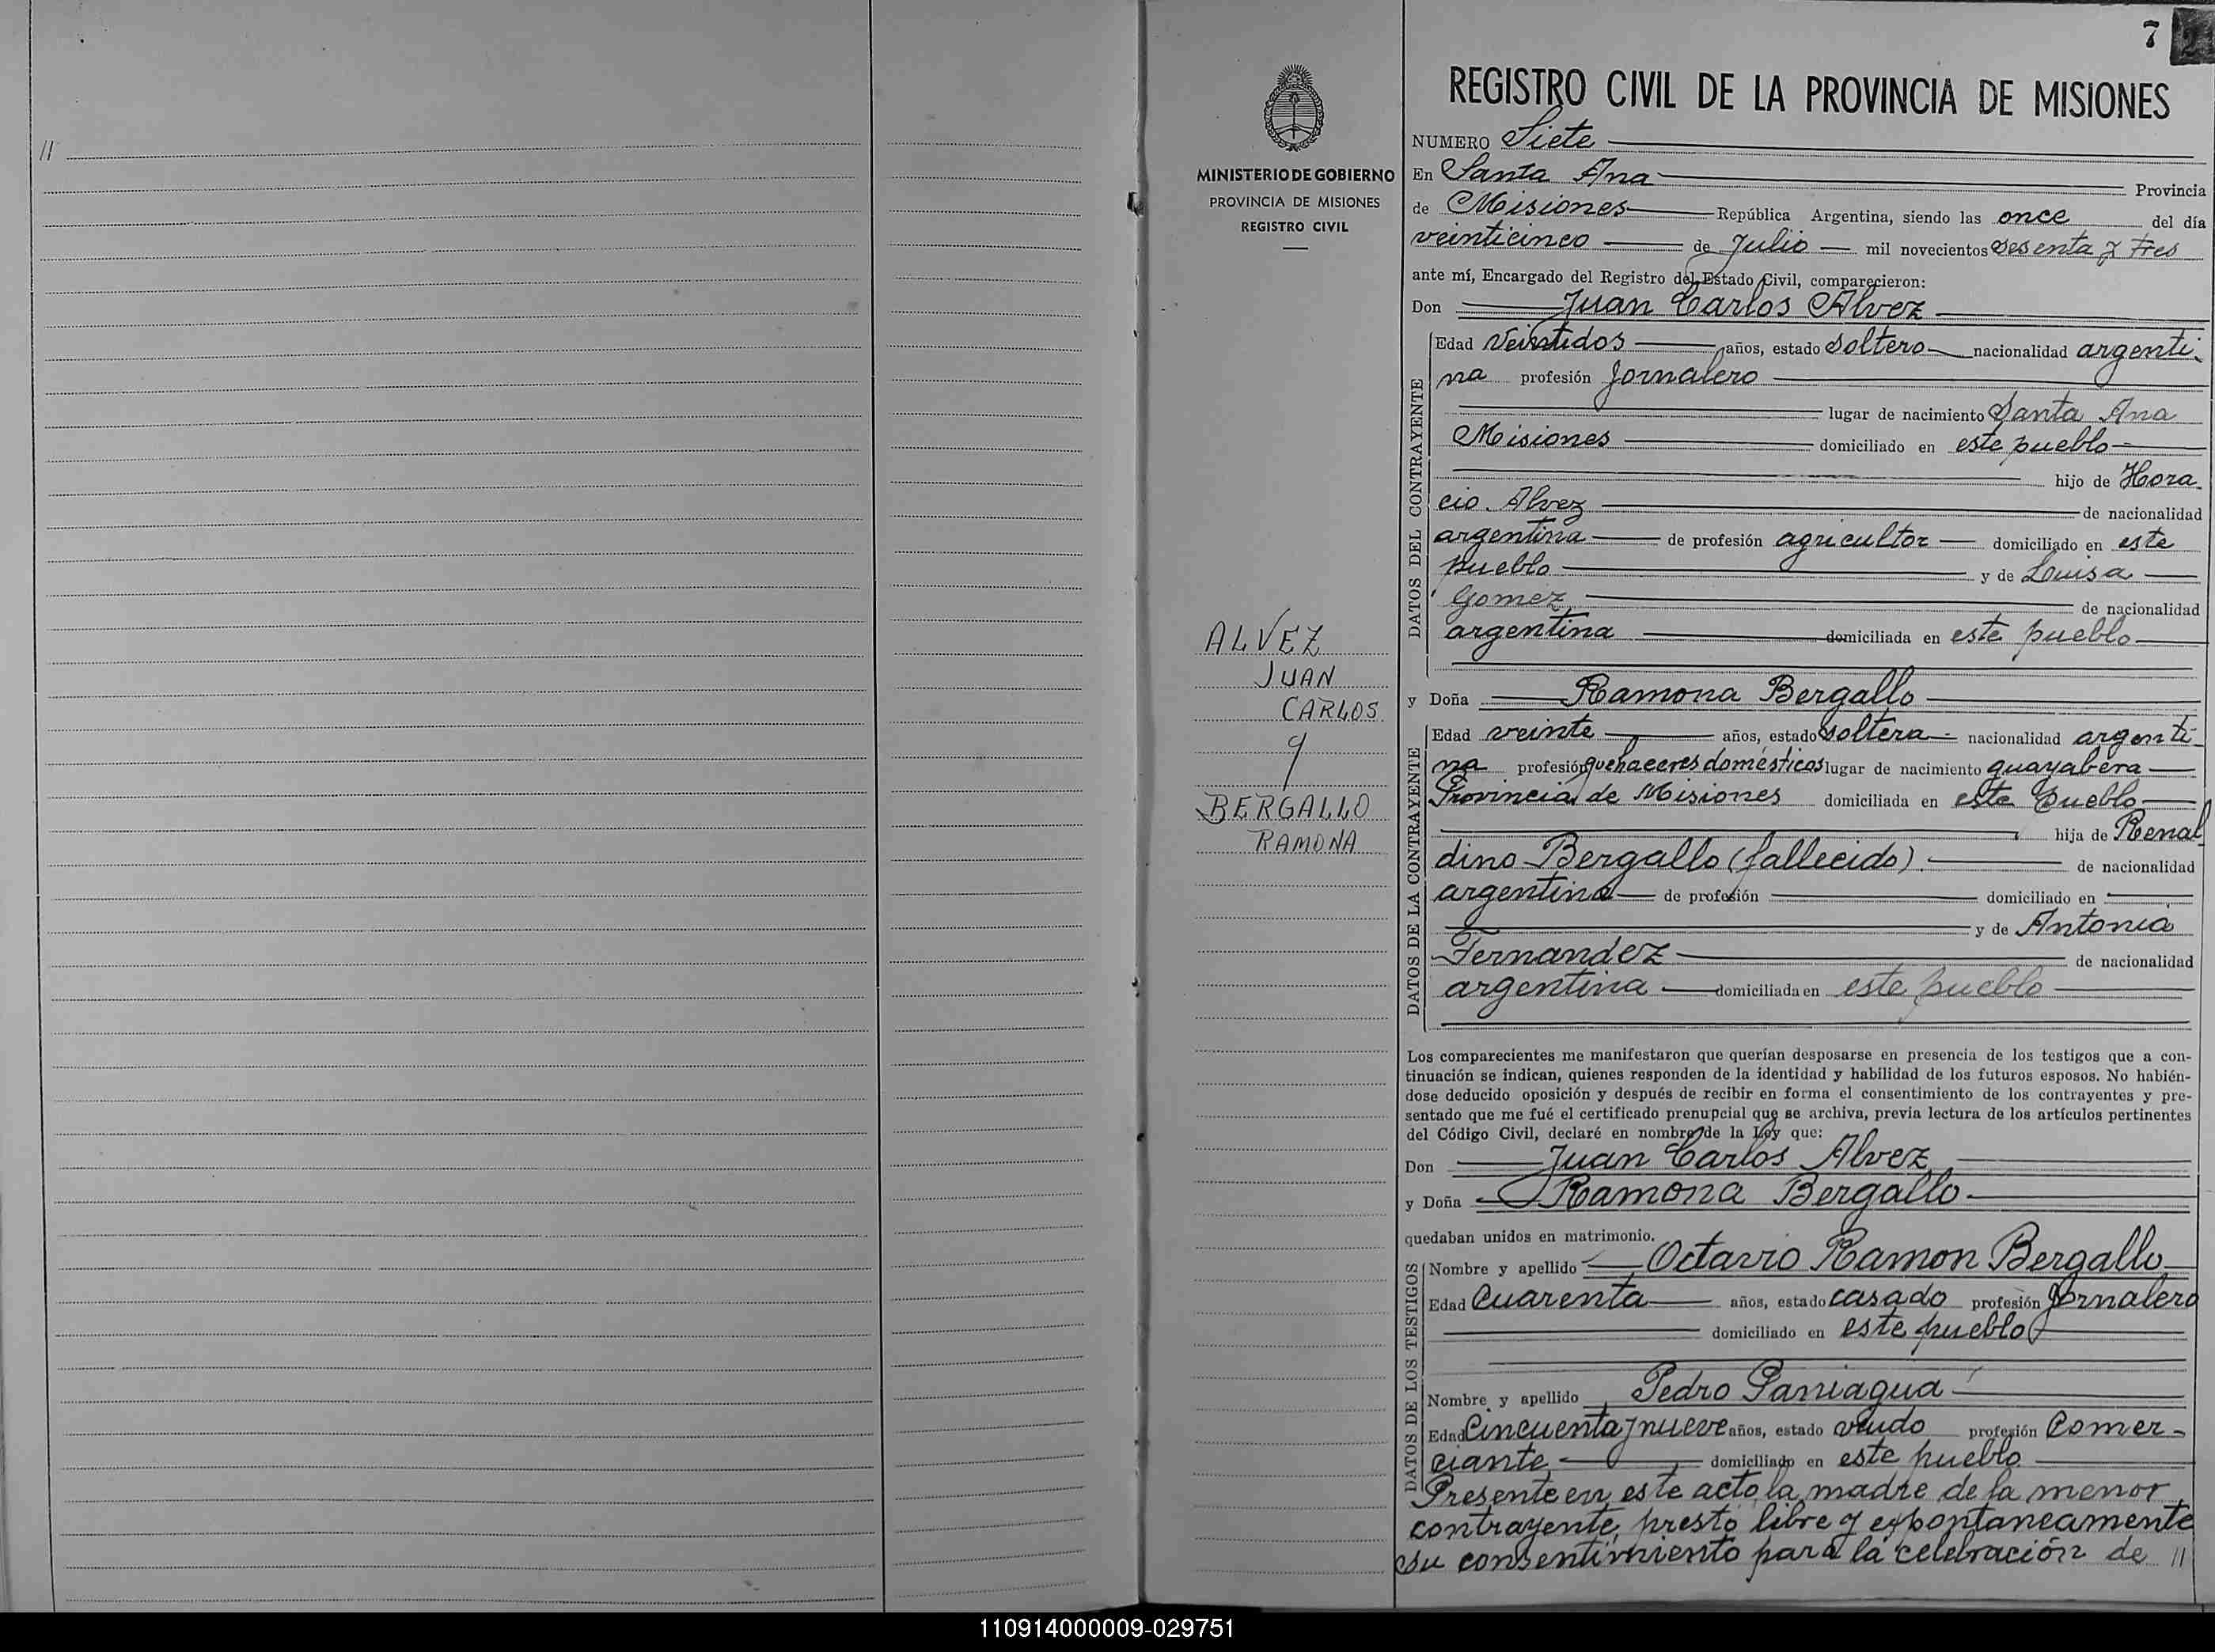 //
7
2
REGISTRO CIVIL DE LA PROVINCIA DE MISIONES
MINISTERIO DE GOBIERNO
PROVINCIA DE MISIONES
REGISTRO CIVIL
ALVEZ
JUAN
CARLOS
y
BERGALLO
RAMONA
NUMERO Siete
En Santa Ana Provincia
de Misiones República Argentina, siendo las once del día
veinticinco de Julio mil novecientos sesenta y tres
ante mí, Encargado del Registro del Estado Civil, comparecieron:
Don Juan Carlos Alvez
DATOS DEL CONTRAYENTE
Edad Veintidos años, estado soltero nacionalidad argenti-
na profesión Jornalero
lugar de nacimiento Santa Ana
Misiones domiciliado en este pueblo
hijo de Hora-
cio Alvez de nacionalidad
argentina de profesión agricultor domiciliado en este
pueblo y de Luisa
Gomez de nacionalidad
argentina domiciliada en este pueblo
y Doña Ramona Bergallo
DATOS DE LA CONTRAYENTE
Edad veinte años, estado soltera nacionalidad argenti-
na profesión quehaceres domésticos lugar de nacimiento guayabera
Provincia de Misiones domiciliada en este Pueblo
hija de Renal-
dino Bergallo (fallecido) de nacionalidad
argentina de profesión domiciliado en
y de Antonia
Fernandez de nacionalidad
argentina domiciliada en este pueblo
Los comparecientes me manifestaron que querían desposarse en presencia de los testigos que a con-
tinuación se indican, quienes responden de la identidad y habilidad de los futuros esposos. No habién-
dose deducido oposición y después de recibir en forma el consentimiento de los contrayentes y pre-
sentado que me fué el certificado prenupcial que se archiva, previa lectura de los artículos pertinentes
del Código Civil, declaré en nombre de la Ley que:
Don Juan Carlos Alvez
y Doña Ramona Bergallo
quedaban unidos en matrimonio.
DATOS DE LOS TESTIGOS
Nombre y apellido Octavio Ramon Bergallo
Edad Cuarenta años, estado casado profesión Jornalero
domiciliado en este pueblo
Nombre y apellido Pedro Paniagua
Edad Cincuenta y nueve años, estado viudo profesión Comer-
ciante domiciliado en este pueblo.
Presente en este acto la madre de la menor
contrayente, prestó libre y expontaneamente
su consentimiento para la celebración de //
110914000009-029751